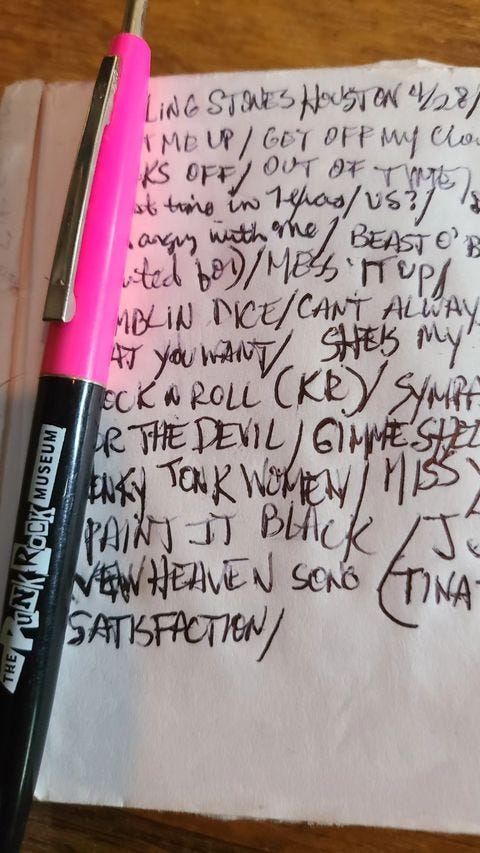 LING STONES HOUSTON 4/28/
T ME UP/ GET OFF MY CLOU
KS OFF/ OUT OF TIME/
st time in Texas/US?/
angry with me/ BEAST O' B
uted boi)/ MESS IT UP/
MBLIN DICE/CANT ALWAY
AT YOU WANT/ SHE'S MY
OCK N ROLL (KR)/ SYMPA
OR THE DEVIL/ GIMME SHEL
ONKY TONK WOMEN/ MISS Y
PAINT IT BLACK / J
NEW HEAVEN SONG (TINA
SATISFACTION/
THE PUNK ROCK MUSEUM